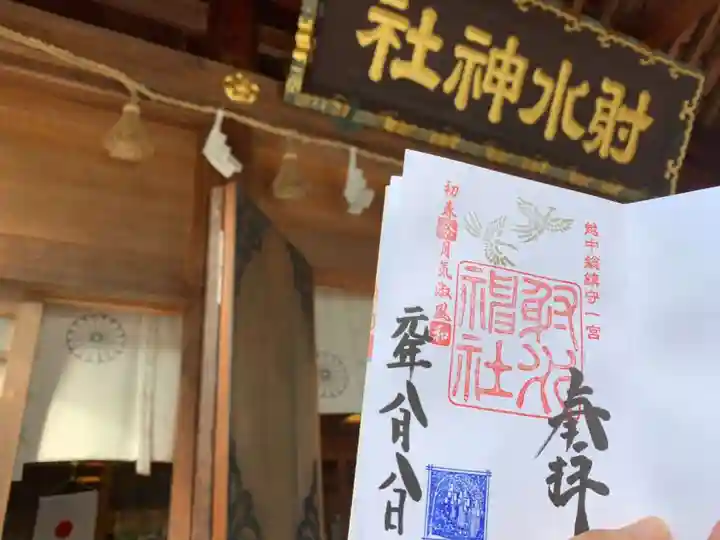 射水神社
越中総鎮守一宮
奉拝
射水神社
初春令月気淑風和
元年八月八日